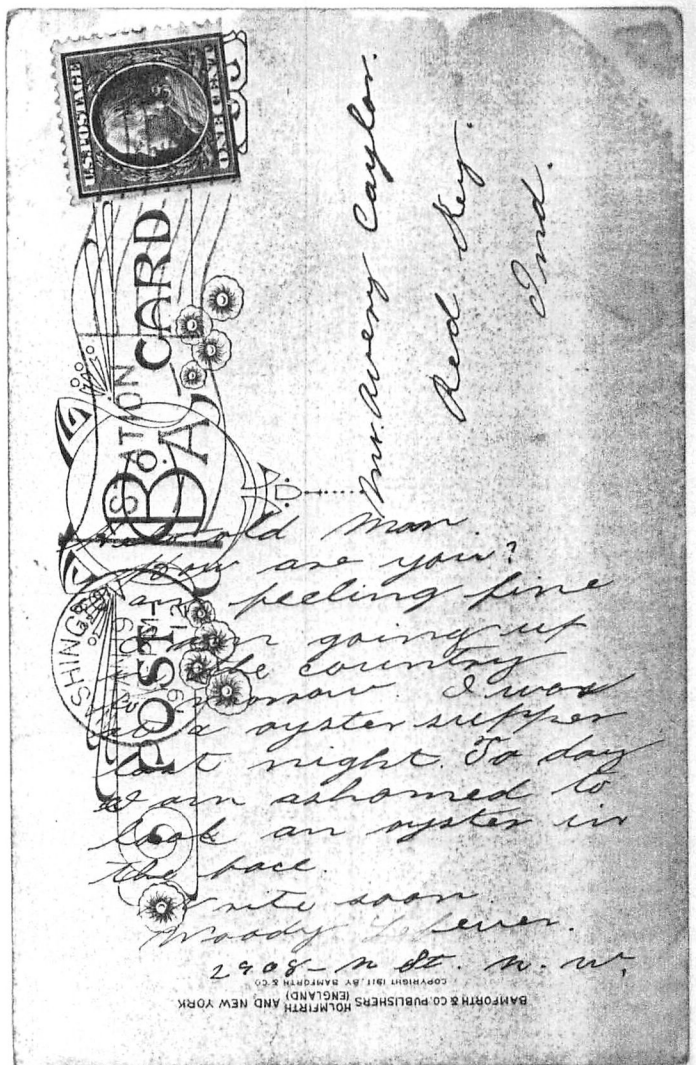 U.S. POSTAGE
ONE CENT
POST CARD
STATION
Mr. Avery Caylor.
Red Key.
Ind.
old Man
How are you?
am feeling fine
am going up
the country
tomorrow. I was
at a oyster supper
last night. To day
I am ashamed to
look an oyster in
the face.
Write soon.
Woody
2908 - N St. N. W.
COPYRIGHT 1911, BY BAMFORTH & CO
BAMFORTH & CO. PUBLISHERS
HOLMFIRTH (ENGLAND) AND NEW YORK